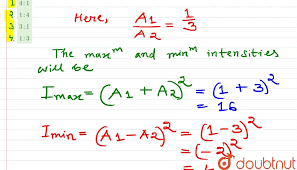 1 4:1
2 1:4
3 3:1
4 1:3
Here, A1/A2 = 1/3
The max^m and min^m intensities
will be
Imax = (A1 + A2)^2 = (1 + 3)^2
= 16
Imin = (A1 - A2)^2 = (1-3)^2
= (-2)^2
doubtnut